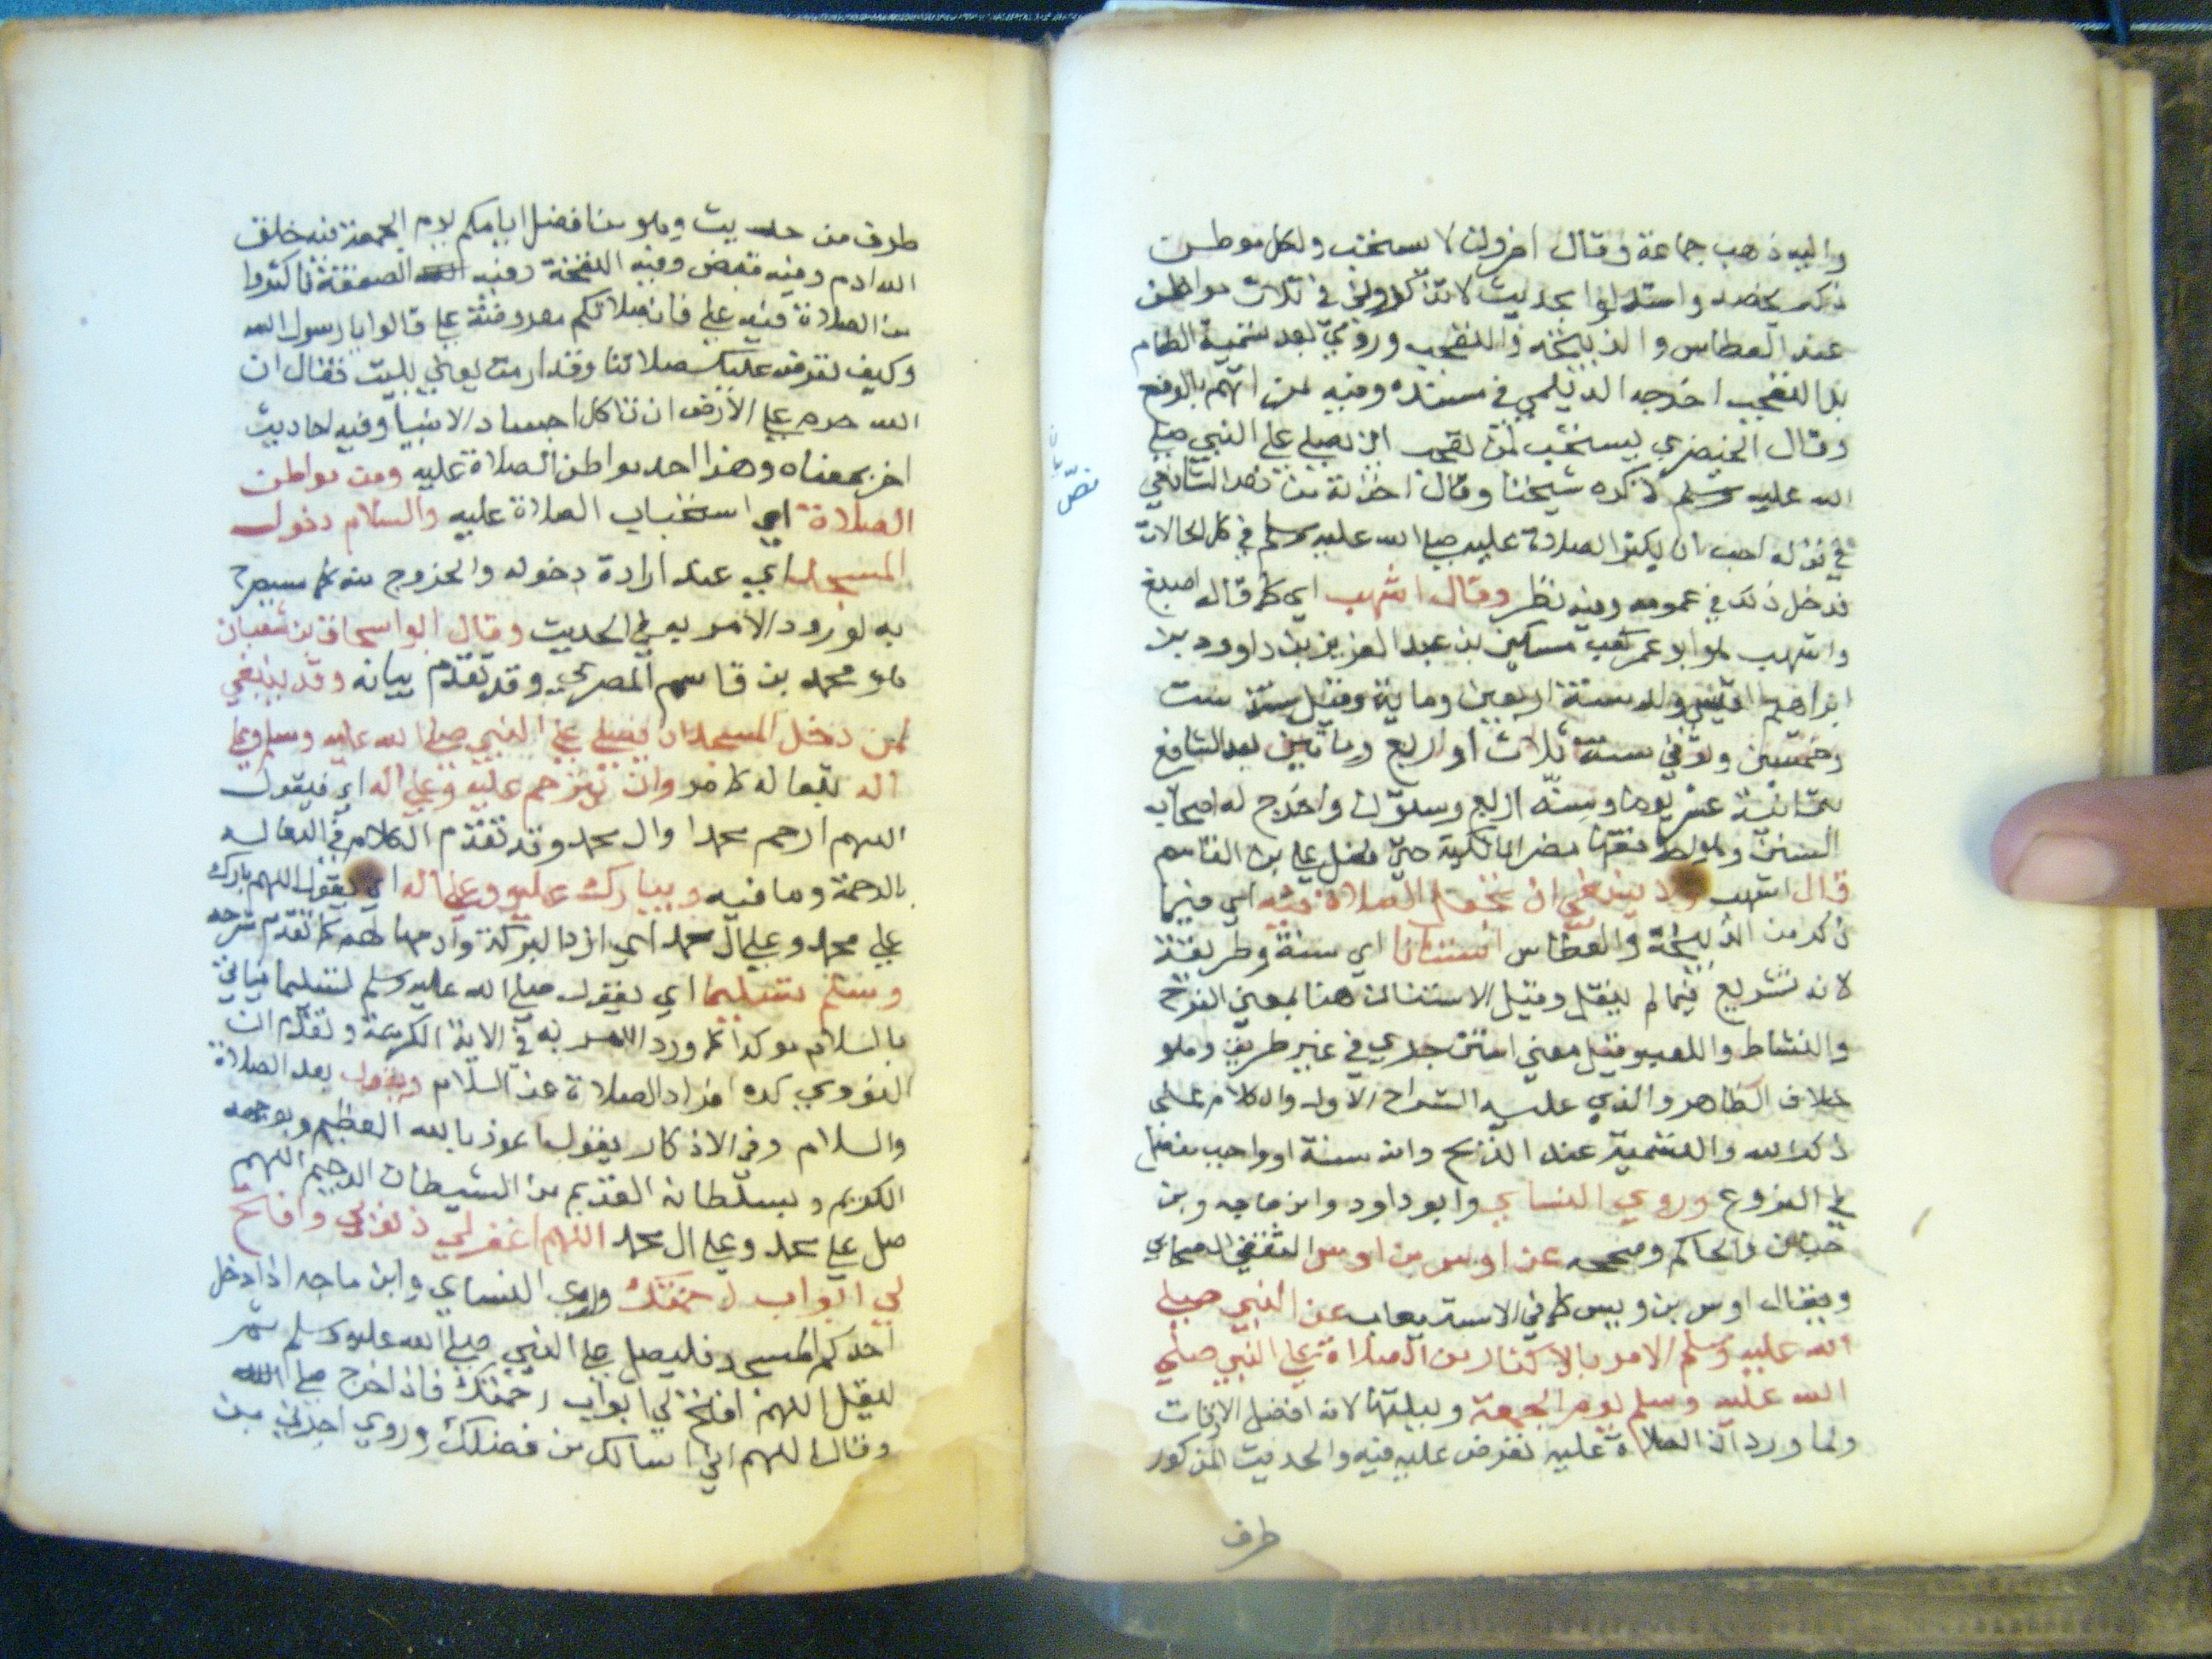 واليه ذهب جماعة وقال اخرون لا يستحب ولكل موطن
ذكر يخصه واستدلوا بحديث لا تذكروني في ثلاث مواطن
عند العطاس والذبيحة والتعجب وروي بعد تسمية الطعام
بدل التعجب اخرجه الديلمي في مسنده وفيه من اتهم بالوضع
وقال الخيضري يستحب لمن تعجب ان يصلي على النبي صلى
الله عليه وسلم ذكره شيخنا وقال اخذته من نص الشافعي
في قوله احب ان يكثر الصلاة عليه صلى الله عليه وسلم في كل الحالات
فدخل ذلك في عمومه وفيه نظر وقال اشهب اي كما قاله اصبغ
واشهب هو ابو عمر لقب مسكين بن عبد العزيز بن داوود بن
ابراهيم القيسي ولد سنة اربعين وماية وقيل سنة ست
وخمسين وتوفي سنة ثلاث او اربع ومايتين بعد الشافعي
بثمانية عشر يوما وسنه اربع وستون واخرج له اصحاب
السنن وهو من فقها مصر المالكية حتى فضل على بن القاسم
قال اشهب ولا ينبغي ان تجعل الصلاة فيه اي فيما
ذكر من الذبيحة والعطاس استنانا اي سنة وطريقة
لانه تشريع فيما لم ينقل وقيل الاستنان هنا بمعنى الفرح
والنشاط واللعب وقيل معنى استن جري في غير طريق وهو
خلاف الظاهر والذي عليه الشراح الاول والكلام على
ذكر الله والتسمية عند الذبح وانه سنة او واجب مفصل
في الفروع وروى النسايي وابو داود وابن ماجه وبن
حبان والحاكم وصححه عن اوس بن اوس الثقفي الصحابي
ويقال اوس بن ويس كما في الاستيعاب عن النبي صلى
الله عليه وسلم الامر بالاكثار من الصلاة على النبي صلى
الله عليه وسلم يوم الجمعة وليلتها لانه افضل الاوقات
ولما ورد ان الصلاة عليه تعرض عليه فيه والحديث المذكور
طرف
نص
طرف من حديث وهو من افضل ايامكم يوم الجمعة فيه خلق
الله ادم وفيه قبض وفيه النفخة وفيه الصعقة فاكثروا
من الصلاة فيه علي فان صلاتكم معروضة علي قالوا يا رسول الله
وكيف تعرض عليك صلاتنا وقد ارمت يعني بليت فقال ان
الله حرم على الارض ان تاكل اجساد الانبيا وفيه احاديث
اخر بمعناه وهذا احد مواطن الصلاة عليه ومن مواطن
الصلاة اي استحباب الصلاة عليه والسلام دخول
المسجد اي عند ارادة دخوله والخروج منه كما سيصرح
به لورود الامر به في الحديث وقال ابو اسحاق بن شعبان
هو محمد بن قاسم المصري وقد تقدم بيانه وقد ينبغي
لمن دخل المسجد ان يصلي على النبي صلى الله عليه وسلم وعلى
اله تبعا له كما مر وان يترحم عليه وعلى اله اي فيقول
اللهم ارحم محمدا وال محمد وقد تقدم الكلام في الدعا له
بالرحمة وما فيه ويبارك عليه وعلى اله اي يقول اللهم بارك
على محمد وعلى ال محمد اي ازد البركة وادمها لهم كما تقدم شرحه
وسلم تسليما اي يقول صلى الله عليه وسلم تسليما فياتي
بالسلام موكدا كما ورد الامر به في الاية الكريمة وتقدم ان
النووي كره افراد الصلاة عن السلام ويقول بعد الصلاة
والسلام وفي الاذكار يقول اعوذ بالله العظيم وبوجهه
الكريم وبسلطانه القديم من الشيطان الرجيم اللهم
صل على محمد وعلى ال محمد اللهم اغفر لي ذنوبي وافتح
لي ابواب رحمتك وروى النساي وابن ماجه اذا دخل
احدكم المسجد فليصل على النبي صلى الله عليه وسلم ثم
ليقل اللهم افتح لي ابواب رحمتك فاذا خرج صلى
وقال اللهم اني اسالك من فضلك وروي اجرني من